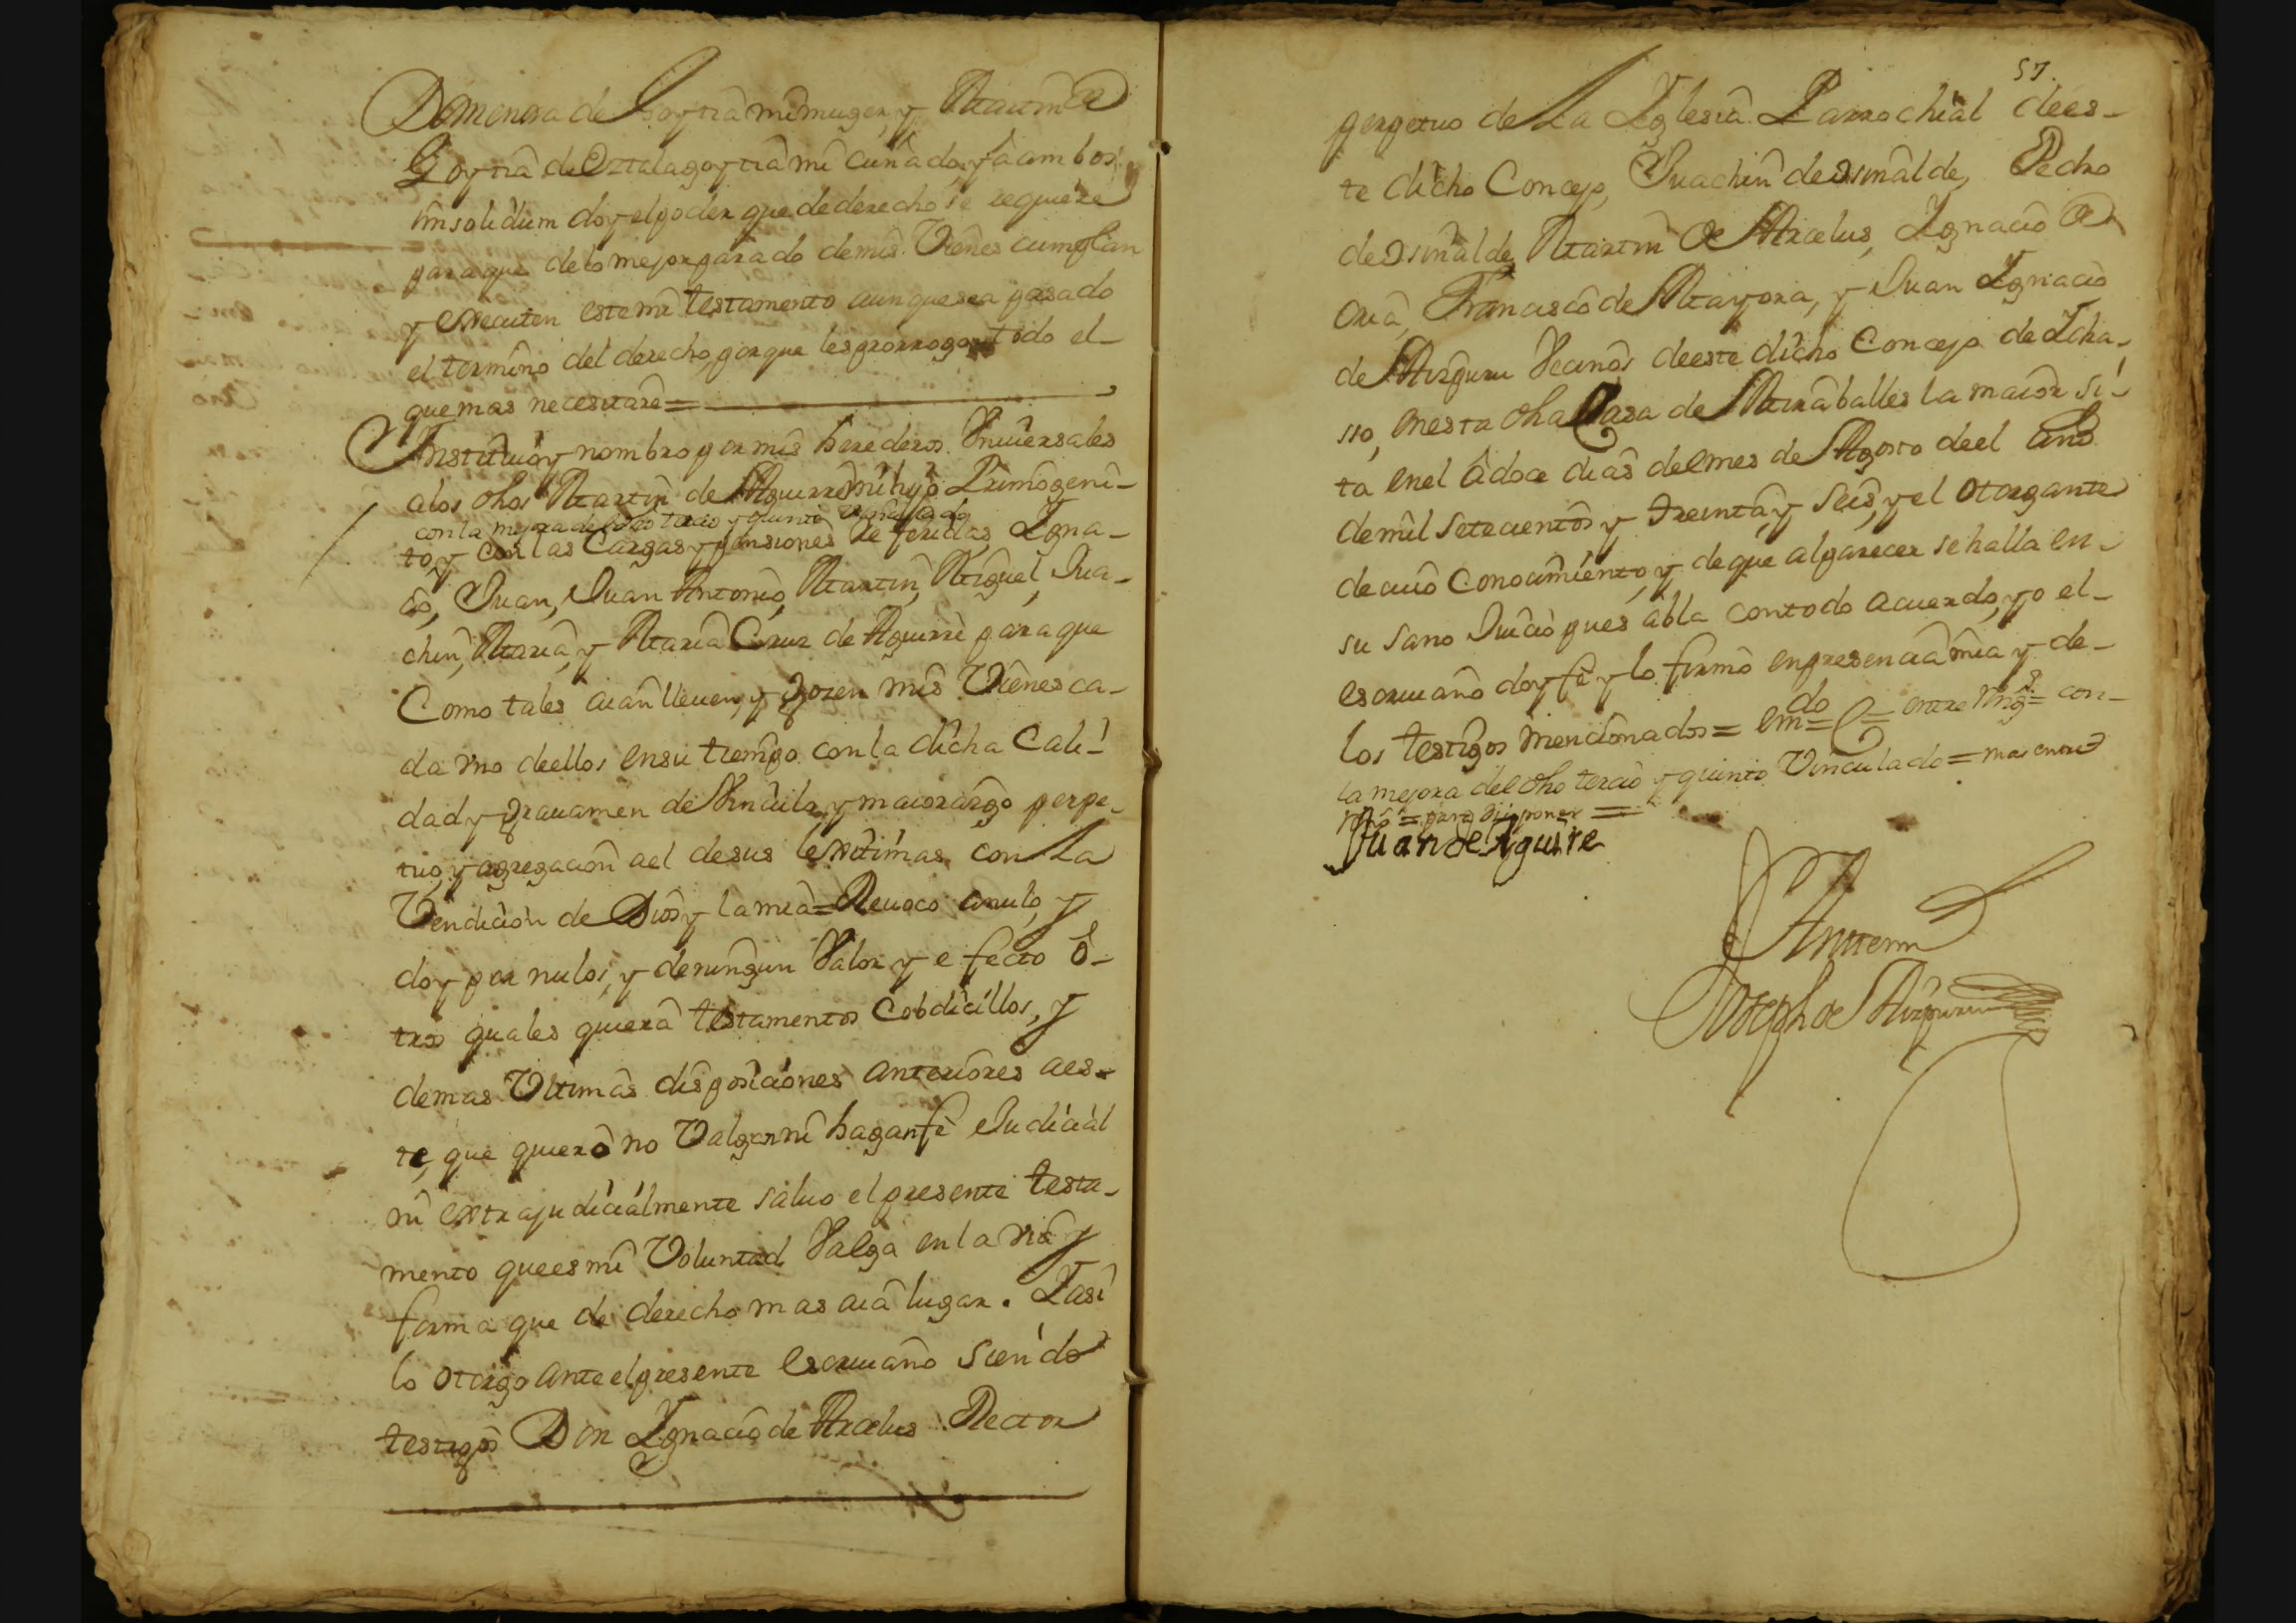 Domenxa de Goytia mi muger, y Martin de
Goytia de Oztalagoytia mi cuñado, y â ambos
in solidum doy el poder que de derecho se requiere
para que de lo mejor parado de mis Vienes cumplan
y executen este mi testamento aunque sea pasado
el termino del derecho, porque les prorrogo todo el
que mas necesitare =
Instituio y nombro por mis herederos Vniversales
a los dhos Martin de Aguirre mi hijo Primogeni-
con la mejora del dho tercio y quinto vinculado
to, y con las Cargas y pensiones referidas, Igna-
cio, Juan, Juan Antonio, Martin, Miguel, Jua-
chin, Maria, y Maria Cruz de Aguirre para que
Como tales aian lleuen, y gozen mis Vienes ca-
da vno de ellos en su tiempo con la dicha Cali-
dad y grauamen de Vinculo, y maiorazgo perpe-
tuo, y agregacion a el de sus lexitimas con La
Vendicion de Dios y la mia = Reuoco anulo, y
doy por nulos, y de ningun Valor y efecto ô-
tros quales quiera testamentos Cobdicillos, y
demas Vltimas disposiciones anteriores a es-
te, que quiero no Valgan ni hagan fê Judicial
ni extrajudicialmente saluo el presente testa-
mento que es mi Voluntad Valga en la via y
forma que de derecho mas aia lugar. Y asi
lo otorgo ante el presente escriuano siendo
testigos Don Ignacio de Arcelus Rector
57.
perpetuo de La Iglesia Parrochial de es-
te dicho Concejo, Juachin de Osinalde, Pedro
de Osinalde, Martin de Arcelus, Ignacio de
Oria, Francisco de Mayora, y Juan Ignacio
de Aizpuru Vecinos de este dicho Concejo de Icha-
sso, en esta dha Casa de Miraballes la maior si-
ta en el â doce dias del mes de Agosto de el año
de mil setecientos y treinta y seis, y el otorgante
de cuio Conocimiento, y de que al parecer se halla en
su sano Juicio pues abla con todo acuerdo, yo el
escriuano doy fê y lo firmô en presencia mia y de
los testigos mencionados = em.do = C = entre rrng.s = con
la mejora del dho tercio y quinto Vinculado = mas entre
= para disponer =
Juan de Aguirre
Antemi
Joseph de Aizpuru